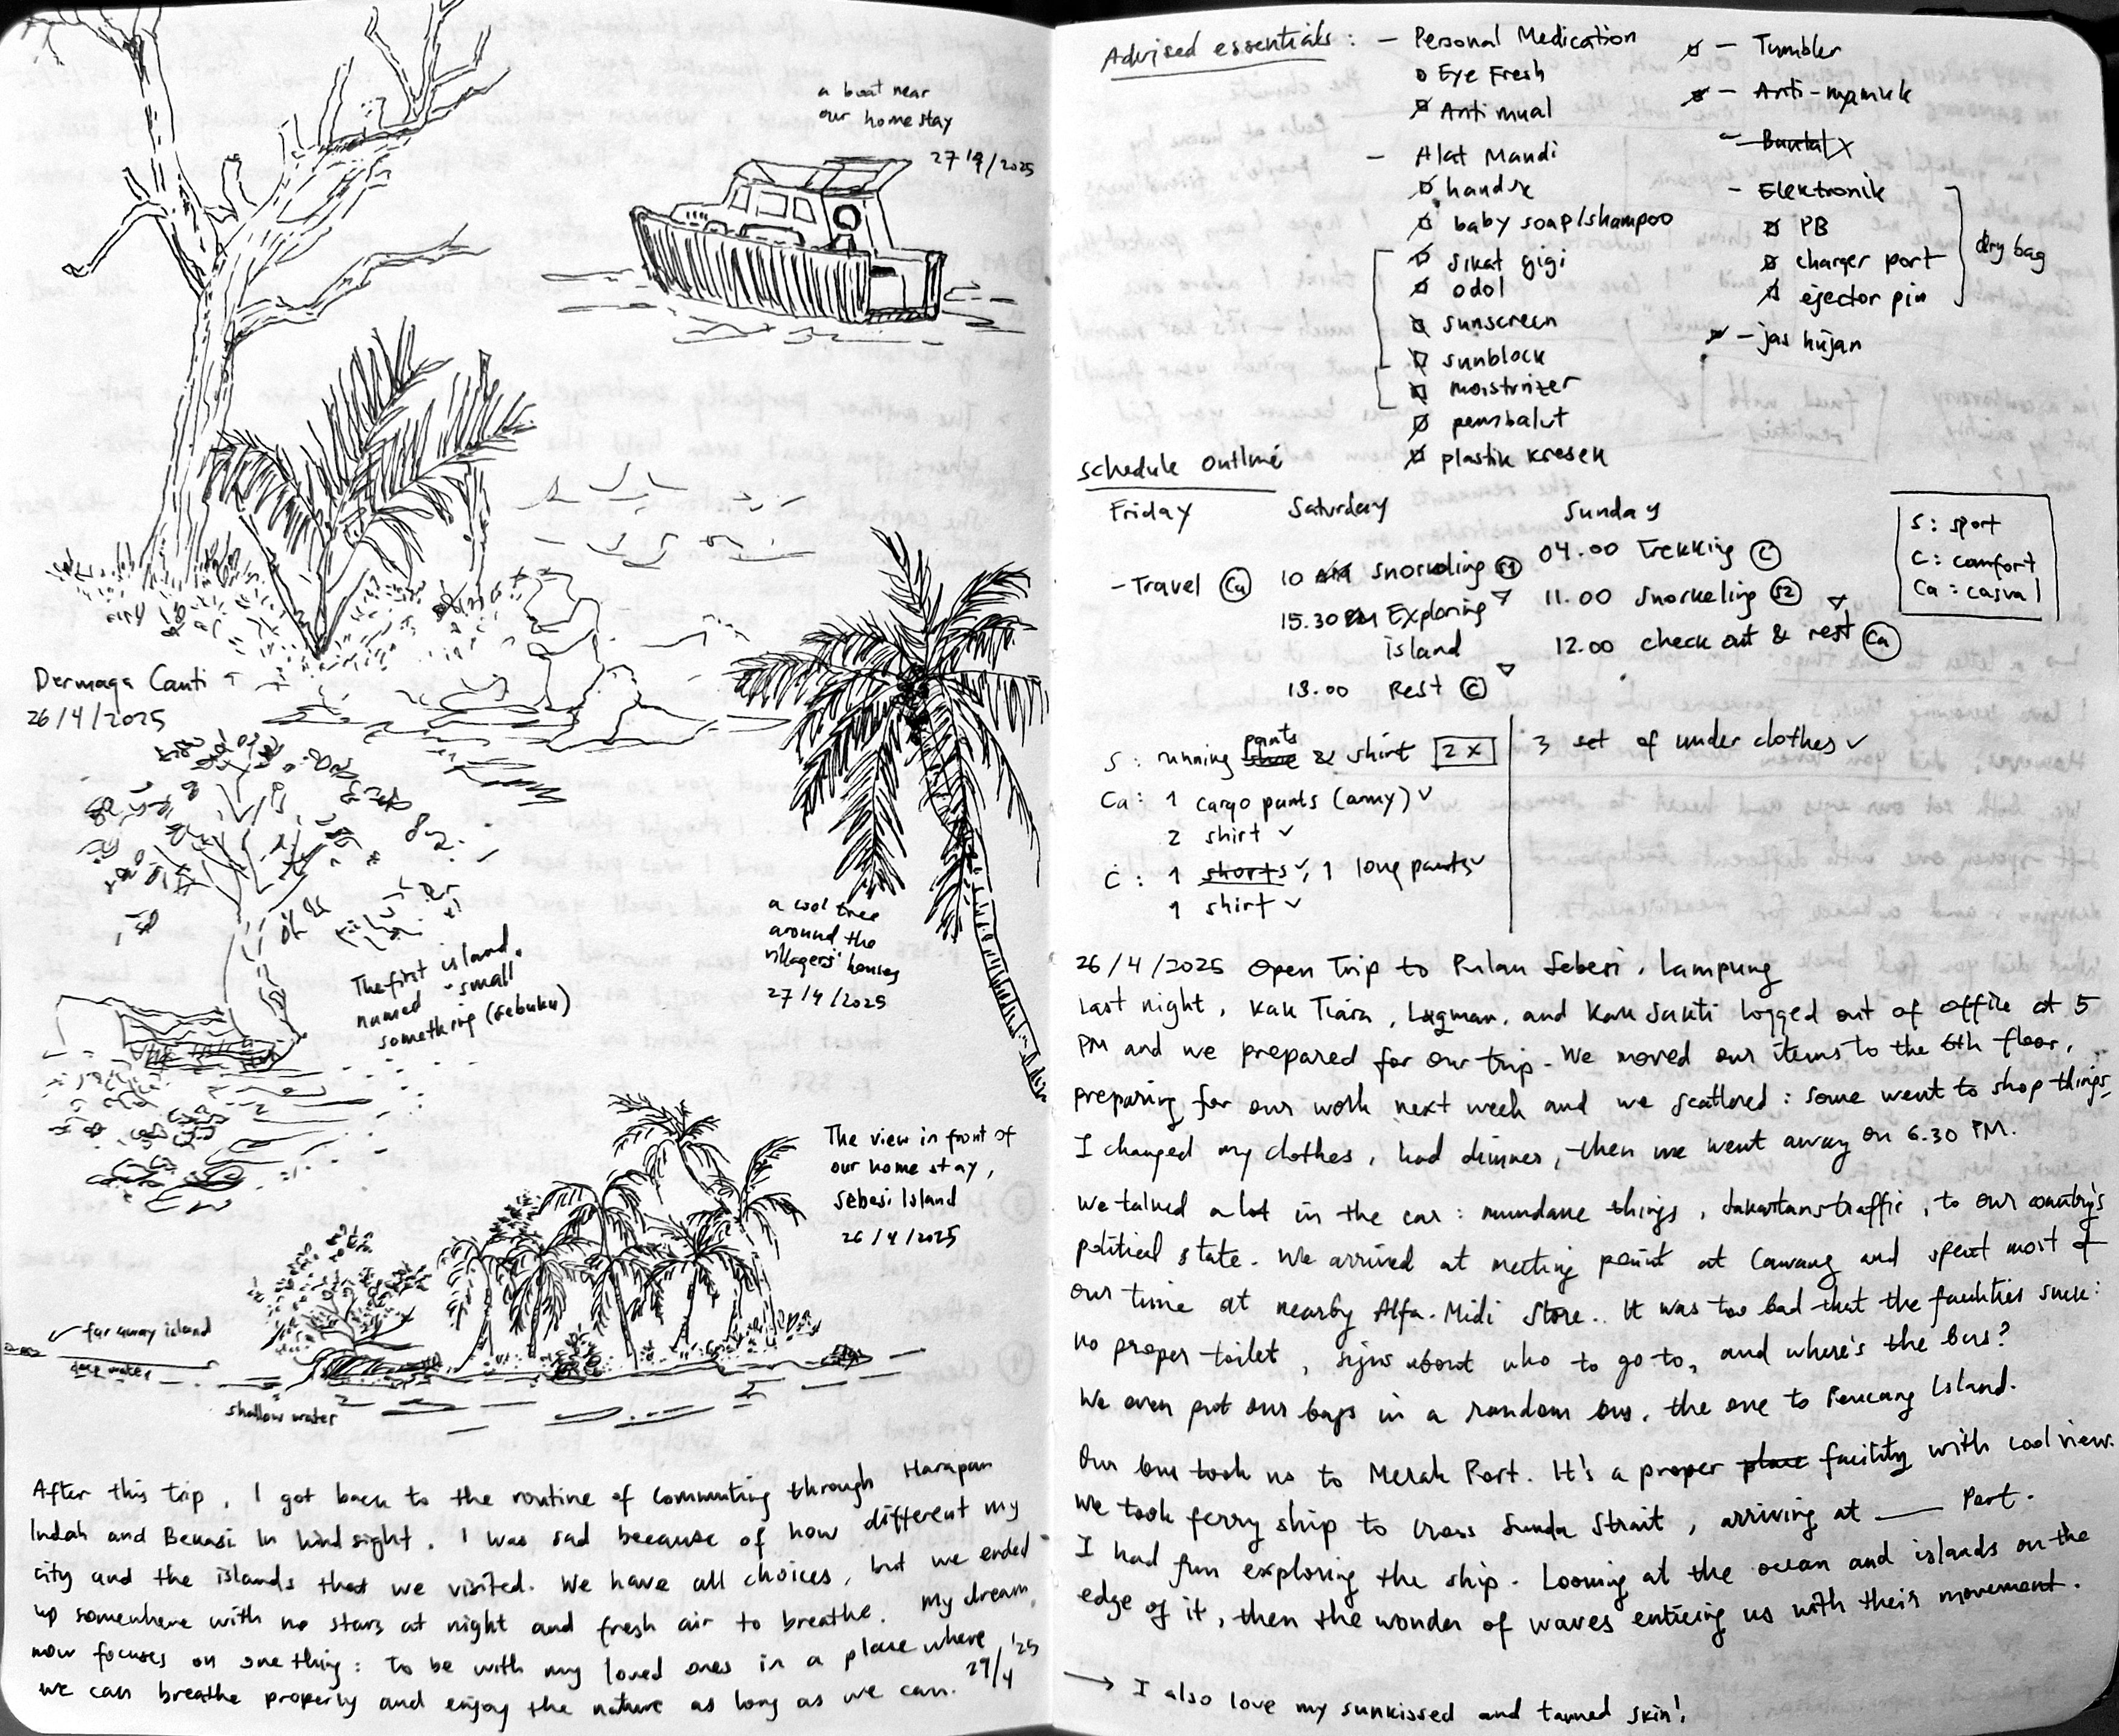 a boat near
our homestay
27/4/2025
Dermaga Canti
26/4/2025
a cool tree
around the
villagers' houses
27/4/2025
The first island,
named "small
something (Sebuku)
The view in front of
our home stay,
Sebesi Island
26/4/2025
far away island
deep water
shallow water
After this trip, I got back to the routine of commuting through Harapan
Indah and Bekasi. In hindsight, I was sad because of how different my
city and the islands that we visited. We have all choices, but we ended
up somewhere with no stars at night and fresh air to breathe. My dream,
now focuses on one thing: to be with my loved ones in a place where
we can breathe properly and enjoy the nature as long as we can. 29/4 '25
Advised essentials: - Personal Medication
Eye Fresh
Anti mual
- Alat Mandi
handuk
baby soap/shampoo
sikat gigi
odol
sunscreen
sunblock
moisturizer
pembalut
plastik kresek
- Tumbler
- Anti-nyamuk
- Bantal x
- Elektronik
PB
charger port
ejector pin
dry bag
- jas hujan
Schedule Outline
Friday
- Travel Ca
Saturday
10 AM snorkeling S1
15.30 PM Exploring
island
Rest C
Sunday
04.00 Trekking C
11.00 Snorkeling S2
12.00 check out & rest Ca
S: sport
C: comfort
Ca: casual
S: running shoe pants & shirt 2x
Ca: 1 cargo pants (army) ✓
2 shirt ✓
C: 1 shorts ✓, 1 long pants ✓
1 shirt ✓
3 set of under clothes ✓
26/4/2025 Open Trip to Pulau Sebesi, Lampung
Last night, Kak Tiara, Luqman, and Kak Sakti logged out of office at 5
PM and we prepared for our trip. We moved our items to the 6th floor,
preparing for our work next week and we scattered: some went to shop things,
I changed my clothes, had dinner, then we went away on 6.30 PM.
We talked a lot in the car: mundane things, Jakartans traffic, to our country's
political state. We arrived at meeting point at Cawang and spent most of
our time at nearby Alfa-Midi Store.. It was too bad that the facilities suck:
no proper toilet, signs about who to go to, and where's the bus?
We even put our bags in a random bus, the one to Peucang Island.
Our bus took us to Merak Port. It's a proper place facility with cool view.
We took ferry ship to cross Sunda Strait, arriving at ___ Port.
I had fun exploring the ship. Looking at the ocean and islands on the
edge of it, then the wonder of waves enticing us with their movement.
→ I also love my sunkissed and tanned skin!